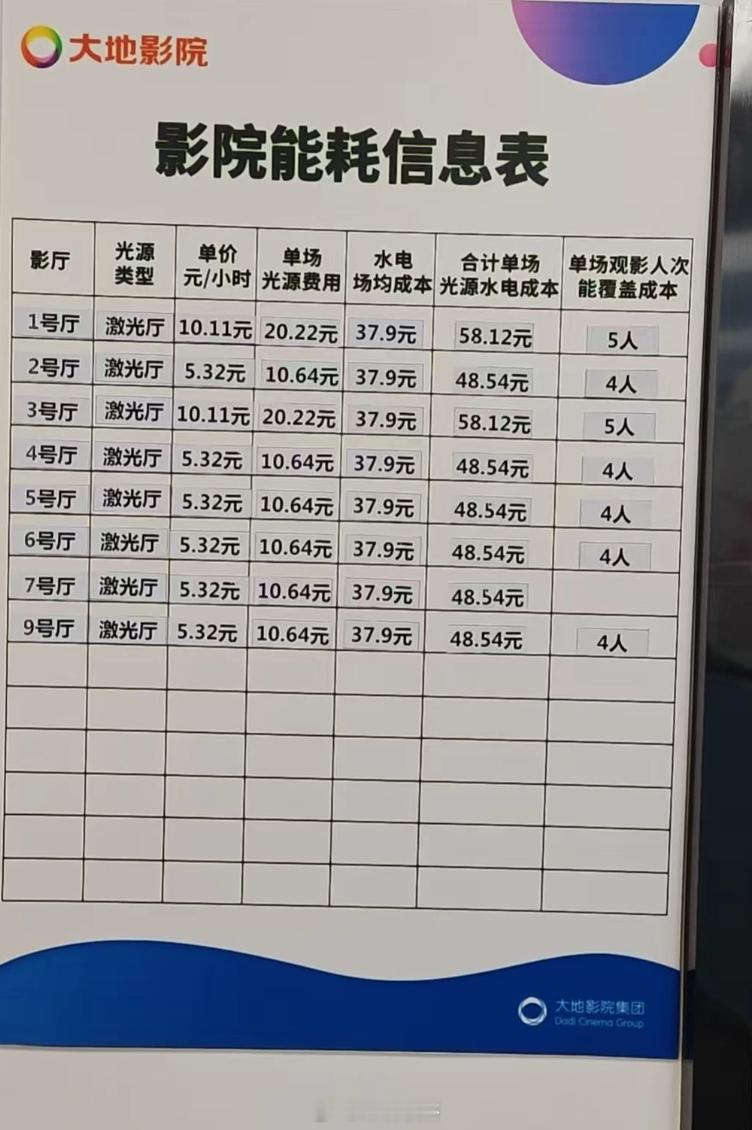 大地影院
影院能耗信息表
影厅 光源类型 单价元/小时 单场光源费用 水电场均成本 合计单场光源水电成本 单场观影人次能覆盖成本
1号厅 激光厅 10.11元 20.22元 37.9元 58.12元 5人
2号厅 激光厅 5.32元 10.64元 37.9元 48.54元 4人
3号厅 激光厅 10.11元 20.22元 37.9元 58.12元 5人
4号厅 激光厅 5.32元 10.64元 37.9元 48.54元 4人
5号厅 激光厅 5.32元 10.64元 37.9元 48.54元 4人
6号厅 激光厅 5.32元 10.64元 37.9元 48.54元 4人
7号厅 激光厅 5.32元 10.64元 37.9元 48.54元
9号厅 激光厅 5.32元 10.64元 37.9元 48.54元 4人
大地影院集团
Dadi Cinema Group